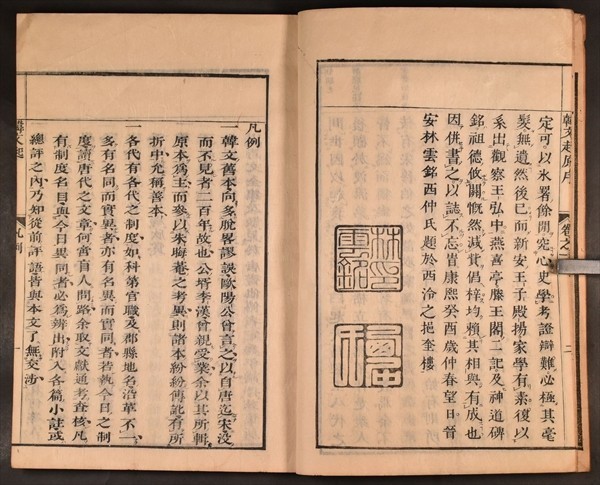 韓文起原序
卷之
二
定可以永署餘閒究心史學考證辯難必極其毫
髮無遺然後已而新安王子殿揚家學有素復以
系出觀察王弘中燕喜亭滕王閣二記及神道碑
銘祖德攸關慨然減貲倡梓均賴其相與有成也
因併書之以誌不忘旹康熙癸酉歲仲春望日晉
安林雲銘西仲氏題於西泠之挹奎樓
林印
雲銘
凡例
一韓文舊本向多脫畧謬誤歐陽公曾言之以自唐迄宋沒
而不見者二百年故也公壻李漢曾親受業余以其所輯
原本爲主而參以朱晦菴之考異則諸本紛紛傳訛有所
折中允稱善本
一各代有各代之制度如科第官職及郡縣地名沿革不一
多有名同而實異者亦有名異而實同者若執今日之制
度讀唐代之文章何啻盲人問路余取文獻通考查核凡
有制度名目與今日異同者必爲辨出附入各篇小註或
總評之內乃知從前評語皆與本文了無交涉
韓文起
凡例
一